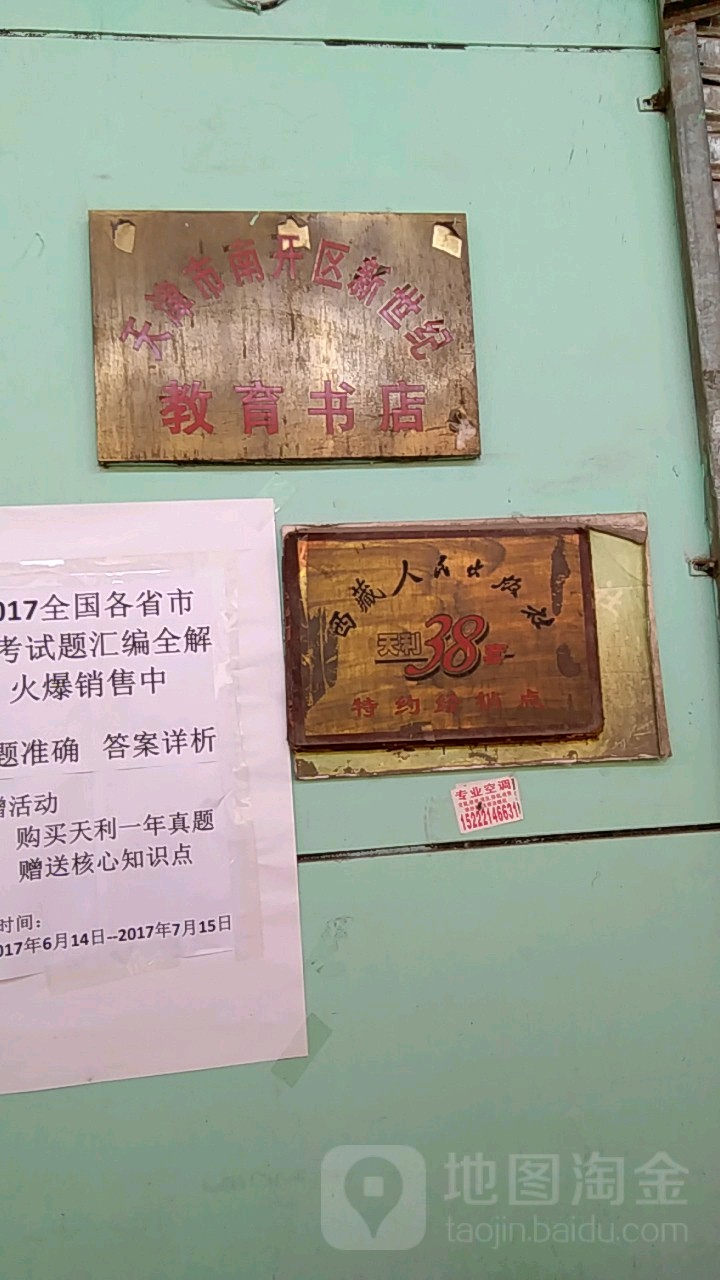 天津市南开区新世纪
教育书店
西藏人民出版社
天利38套
特约经销点
专业空调
15222146631
017全国各省市
考试题汇编全解
火爆销售中
题准确 答案详析
赠活动
购买天利一年真题
赠送核心知识点
时间：
017年6月14日--2017年7月15日
地图淘金
taojin.baidu.com